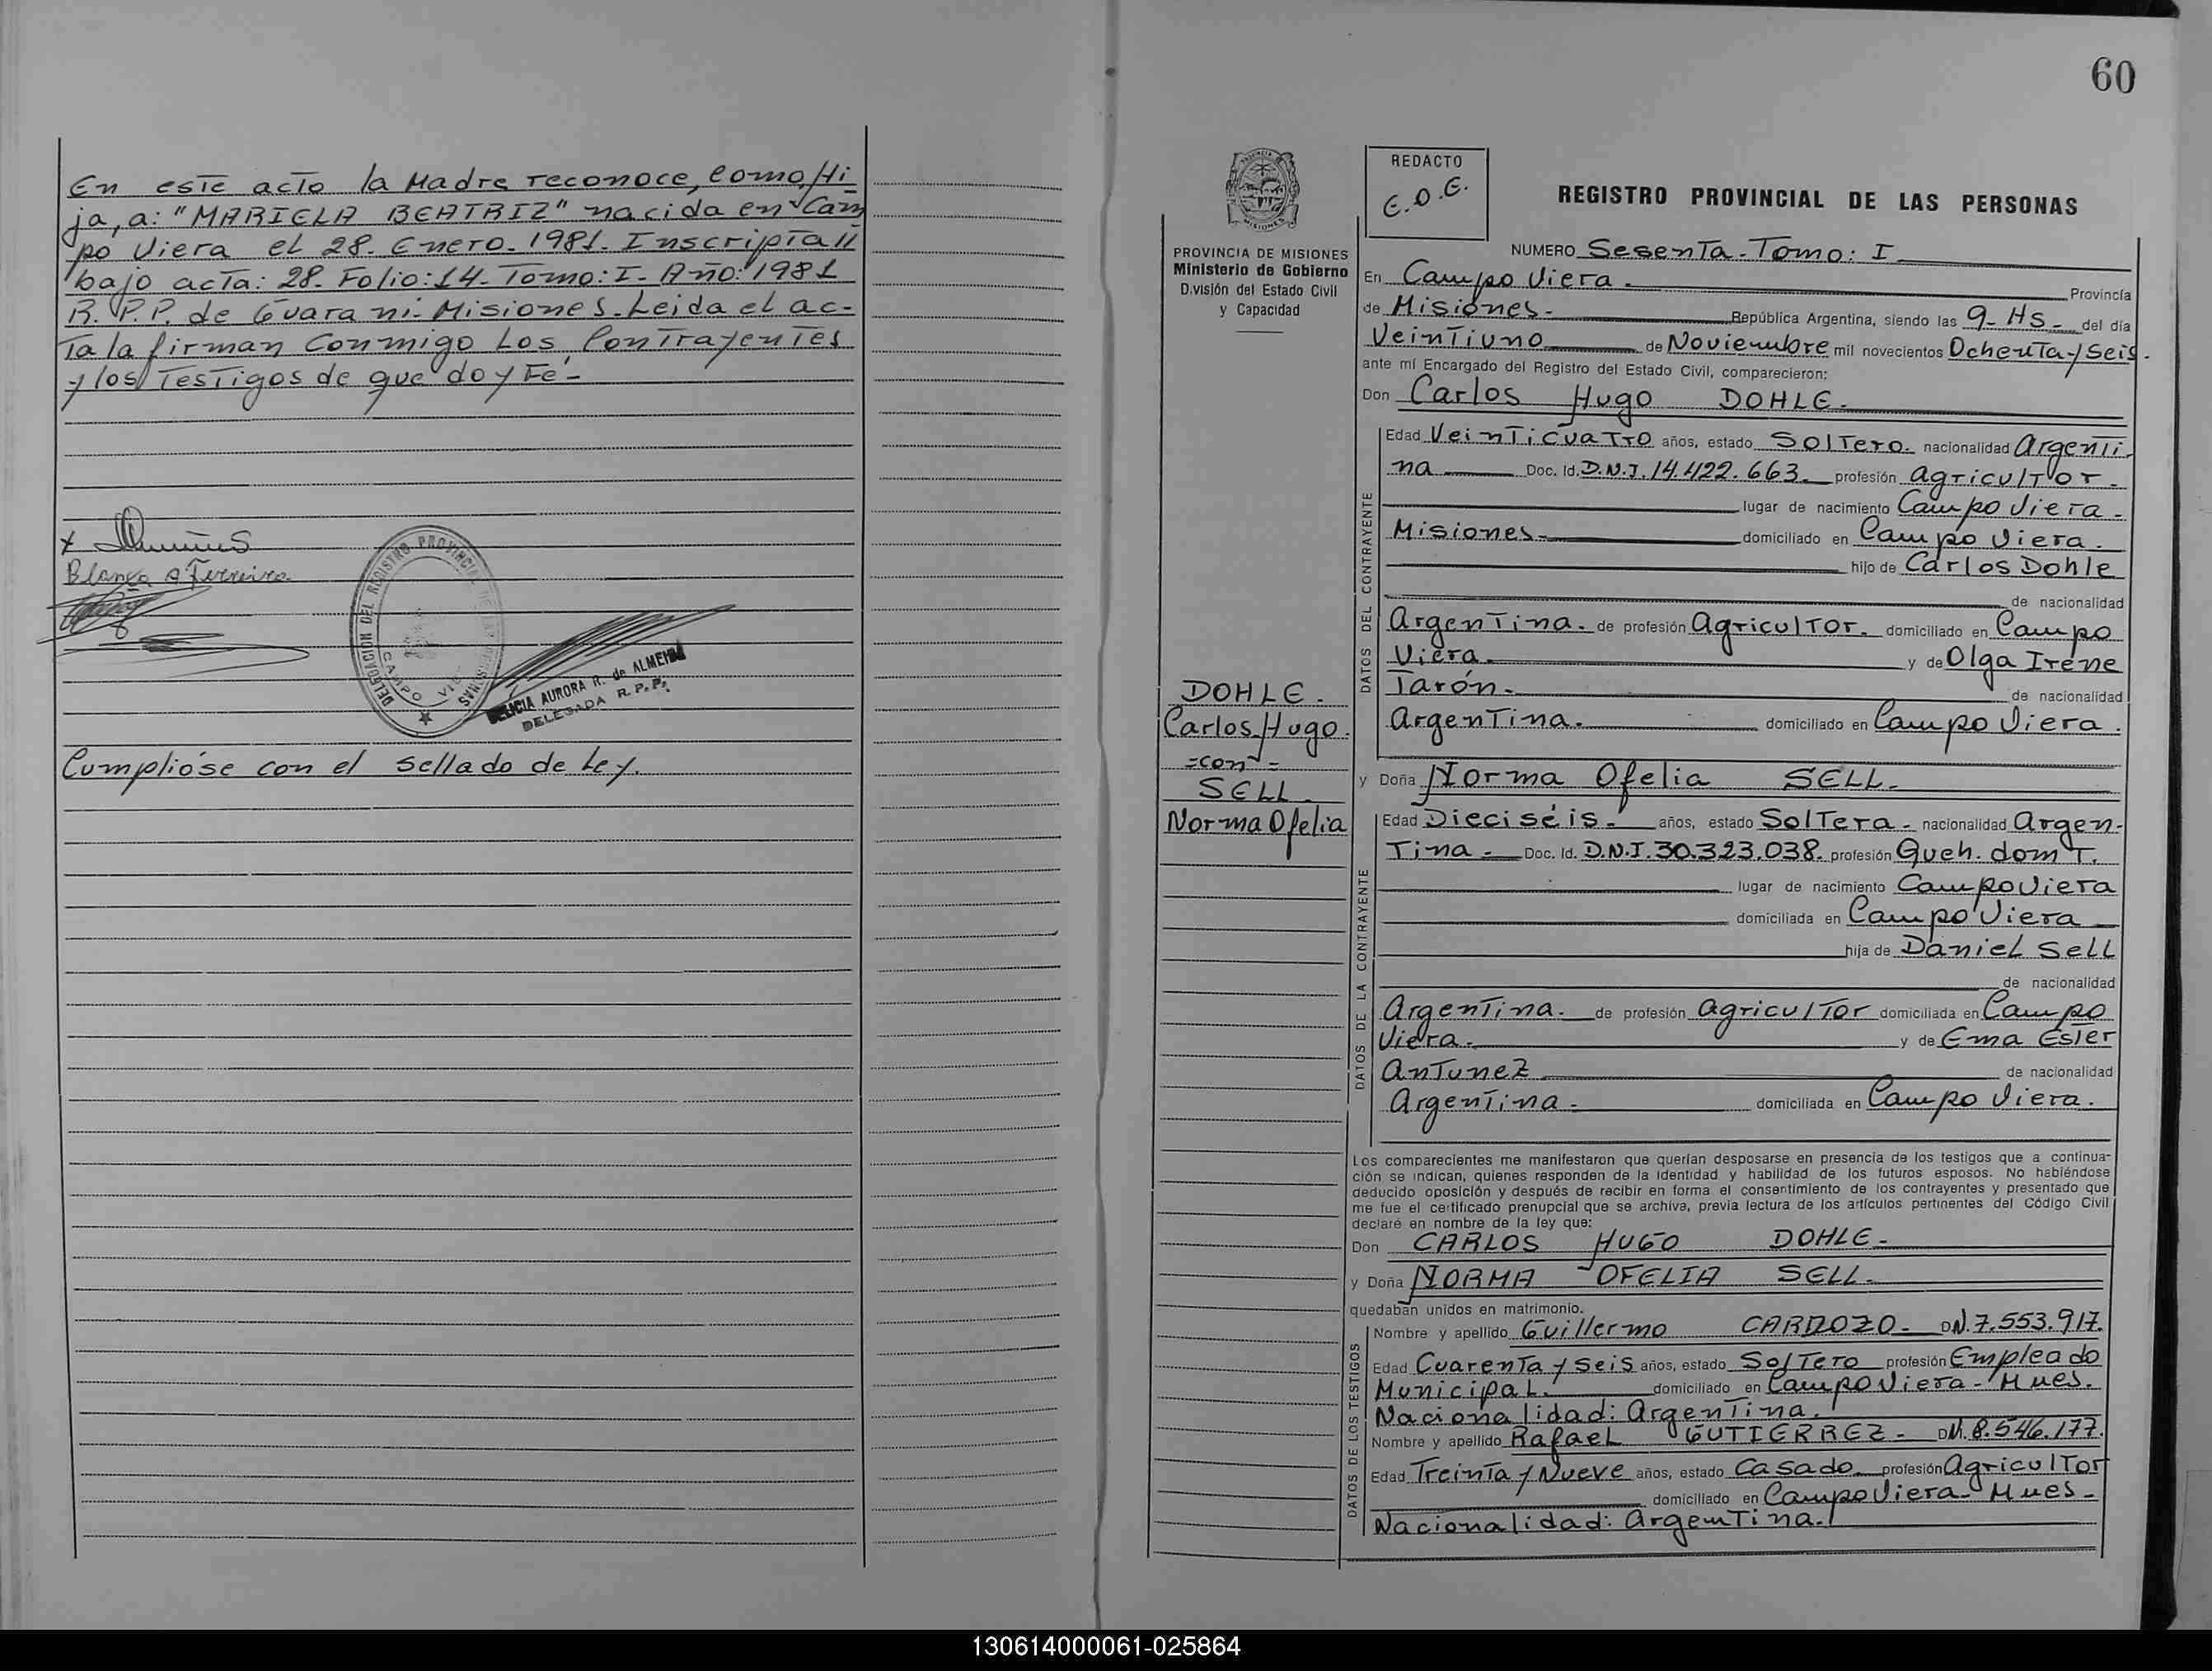 En este acto la Madre reconoce, como Hi-
ja, a: "MARIELA BEATRIZ" nacida en Cam
po Viera el 28. Enero. 1981. Inscripta //
bajo acta: 28. Folio: 14. Tomo: I. Año: 1981
R. P. P. de Guara ni- Misiones. Leida el ac-
ta la firman Conmigo Los Contrayentes
y los Testigos de que doy Fé.-
x
Blanca A Ferreira
DELEGACION DEL REGISTRO PROVINCIAL DE LAS PERSONAS
CAMPO VIERA
DELICIA AURORA R. de ALMEIDA
DELEGADA R. P. P.
Cumplióse con el sellado de Ley.
60
PROVINCIA DE MISIONES
Ministerio de Gobierno
División del Estado Civil
y Capacidad
DOHLE.
Carlos Hugo.
=con=
SELL
Norma Ofelia
REDACTO
E.O.E.
REGISTRO PROVINCIAL DE LAS PERSONAS
NUMERO Sesenta. Tomo: I
En Campo Viera. Provincia
de Misiones- República Argentina, siendo las 9- Hs- del día
Veintiuno de Noviembre mil novecientos Ochenta y Seis.
ante mí Encargado del Registro del Estado Civil, comparecieron:
Don Carlos Hugo DOHLE.
DATOS DEL CONTRAYENTE
Edad Veinticuatro años, estado Soltero. nacionalidad Argenti-
na Doc. Id. D.N.I. 14.422.663. profesión Agricultor-
lugar de nacimiento Campo Viera-
Misiones- domiciliado en Campo Viera.
hijo de Carlos Dohle
de nacionalidad
Argentina. de profesión Agricultor. domiciliado en Campo
Viera. y de Olga Irene
Tarón. de nacionalidad
Argentina. domiciliado en Campo Viera.
y Doña Norma Ofelia SELL.
DATOS DE LA CONTRAYENTE
Edad Dieciséis- años, estado Soltera- nacionalidad Argen-
tina- Doc. Id. D.N.I. 30.323.038. profesión Queh. domt.
lugar de nacimiento Campo Viera
domiciliada en Campo Viera
hija de Daniel Sell
de nacionalidad
Argentina. de profesión Agricultor domiciliada en Campo
Viera. y de Ema Ester
Antunez de nacionalidad
Argentina- domiciliada en Campo Viera.
Los comparecientes me manifestaron que querían desposarse en presencia de los testigos que a continua-
ción se indican, quienes responden de la identidad y habilidad de los futuros esposos. No habiéndose
deducido oposición y después de recibir en forma el consentimiento de los contrayentes y presentado que
me fue el certificado prenupcial que se archiva, previa lectura de los artículos pertinentes del Código Civil
declaré en nombre de la ley que:
Don CARLOS HUGO DOHLE-
y Doña NORMA OFELIA SELL.
quedaban unidos en matrimonio.
DATOS DE LOS TESTIGOS
Nombre y apellido Guillermo CARDOZO- DN. 7.553.917.
Edad Cuarenta y seis años, estado Soltero profesión Empleado
Municipal. domiciliado en Campo Viera- Mnes.
Nacionalidad: Argentina.
Nombre y apellido Rafael GUTIERREZ- DM. 8.546.177.
Edad Treinta y Nueve años, estado Casado profesión Agricultor
domiciliado en Campo Viera- Mnes-
Nacionalidad: Argentina.
130614000061-025864